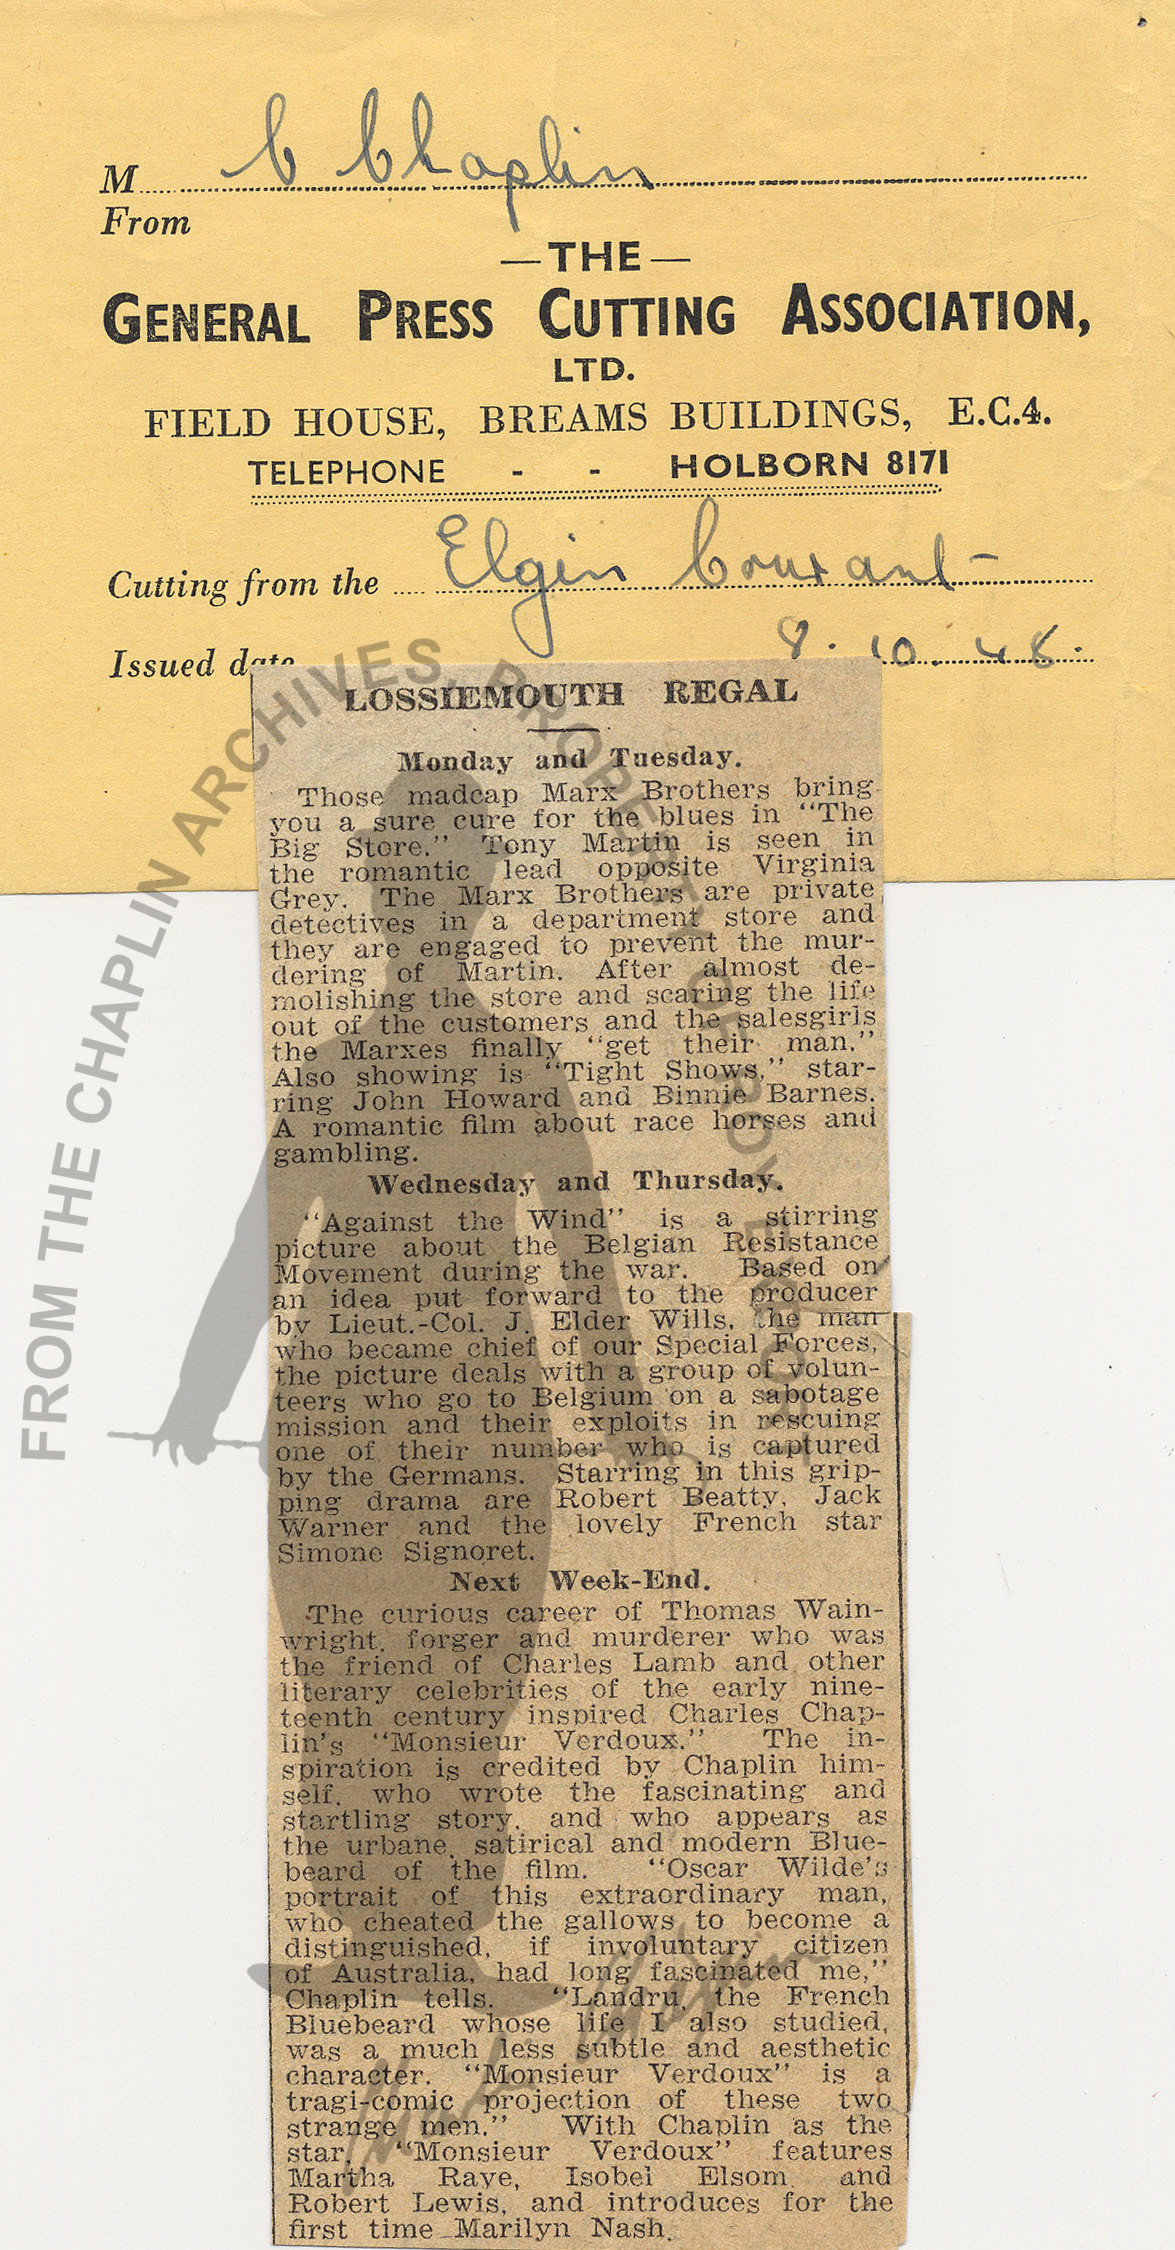 M C Chaplin
From
—THE—
GENERAL PRESS CUTTING ASSOCIATION,
LTD.
FIELD HOUSE, BREAMS BUILDINGS, E.C.4.
TELEPHONE - - HOLBORN 8171
Cutting from the Elgin Courant
Issued date 8.10.48.
FROM THE CHAPLIN ARCHIVES, PROPERTY OF ROY EXPORT
LOSSIEMOUTH REGAL
Monday and Tuesday.
Those madcap Marx Brothers bring
you a sure cure for the blues in "The
Big Store." Tony Martin is seen in
the romantic lead opposite Virginia
Grey. The Marx Brothers are private
detectives in a department store and
they are engaged to prevent the mur-
dering of Martin. After almost de-
molishing the store and scaring the life
out of the customers and the salesgirls
the Marxes finally "get their man."
Also showing is "Tight Shows," star-
ring John Howard and Binnie Barnes.
A romantic film about race horses and
gambling.
Wednesday and Thursday.
"Against the Wind" is a stirring
picture about the Belgian Resistance
Movement during the war. Based on
an idea put forward to the producer
by Lieut.-Col. J. Elder Wills, the man
who became chief of our Special Forces,
the picture deals with a group of volun-
teers who go to Belgium on a sabotage
mission and their exploits in rescuing
one of their number who is captured
by the Germans. Starring in this grip-
ping drama are Robert Beatty, Jack
Warner and the lovely French star
Simone Signoret.
Next Week-End.
The curious career of Thomas Wain-
wright, forger and murderer who was
the friend of Charles Lamb and other
literary celebrities of the early nine-
teenth century inspired Charles Chap-
lin's "Monsieur Verdoux." The in-
spiration is credited by Chaplin him-
self, who wrote the fascinating and
startling story, and who appears as
the urbane, satirical and modern Blue-
beard of the film. "Oscar Wilde's
portrait of this extraordinary man,
who cheated the gallows to become a
distinguished, if involuntary citizen
of Australia, had long fascinated me,"
Chaplin tells. "Landru, the French
Bluebeard whose life I also studied,
was a much less subtle and aesthetic
character. "Monsieur Verdoux" is a
tragi-comic projection of these two
strange men." With Chaplin as the
star, "Monsieur Verdoux" features
Martha Raye, Isobel Elsom and
Robert Lewis, and introduces for the
first time Marilyn Nash.